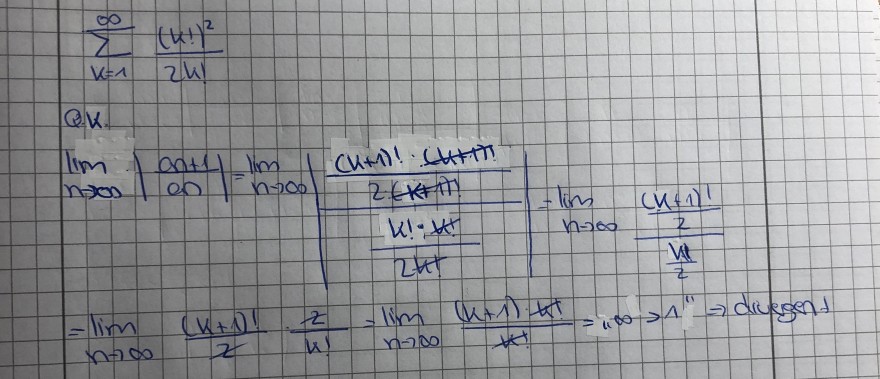 ∞
∑ (k!)² / 2k!
k=1
QK.
lim n→∞ | an+1 / an | = lim n→∞ | ((k+1)! · (k+1)! / 2·(k+1)!) / (k! · k! / 2k!) | = lim n→∞ ((k+1)! / 2) / (k! / 2)
= lim n→∞ (k+1)! / 2 · 2 / k! = lim n→∞ (k+1) · k! / k! = „∞ > 1" ⇒ divergent